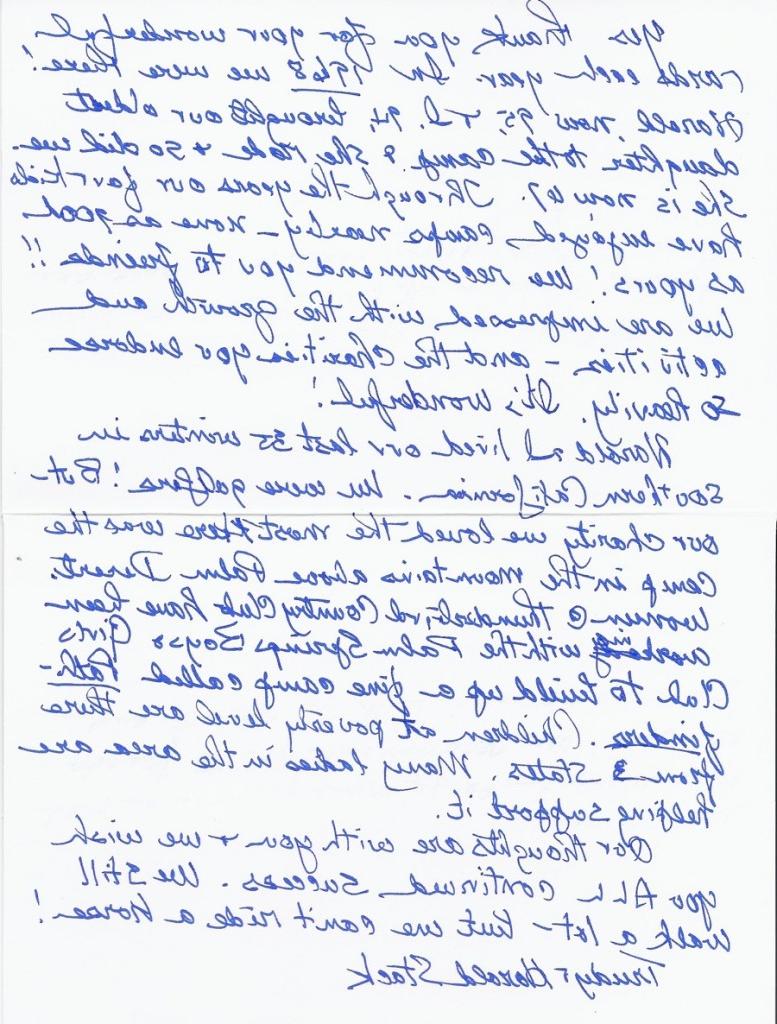 Yes thank you for your wonderful
cards each year. In 1968 we were there!
Harold, now 95, + I, 94, brought our oldest
daughter to the camp & she rode & so did we.
She is now 67. Through the years our four kids
have enjoyed camps nearby - none as good
as yours! We recommend you to friends!!
We are impressed with the growth and
activities - and the charities you endorse
so heavily. It's wonderful!
Harold & I lived our last 35 winters in
Southern California. We were golfers! But
our charity we loved the most there was the
camp in the mountains above Palm Desert.
Women @ Thunderbird Country Club have been
working with the Palm Springs Boys & Girls
Club to build up a fine camp called Path-
finders. Children at poverty level are there
from 3 states. Many ladies in the area are
helping support it.
Our thoughts are with you & we wish
you ALL continued success. We still
walk a lot - but we can't ride a horse!
Trudy & Harold Stack